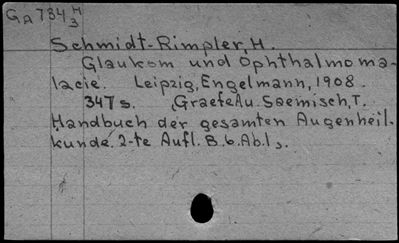 GA7343 H
Schmidt-Rimpler, H.
Glaukom und Ophthalmoma-
lacie. Leipzig, Engelmann, 1908.
347 s. Graefe A u. Saemisch, T.
Handbuch der gesamten Augenheil-
kunde. 2-te Aufl. B. 6. Ab. 1,